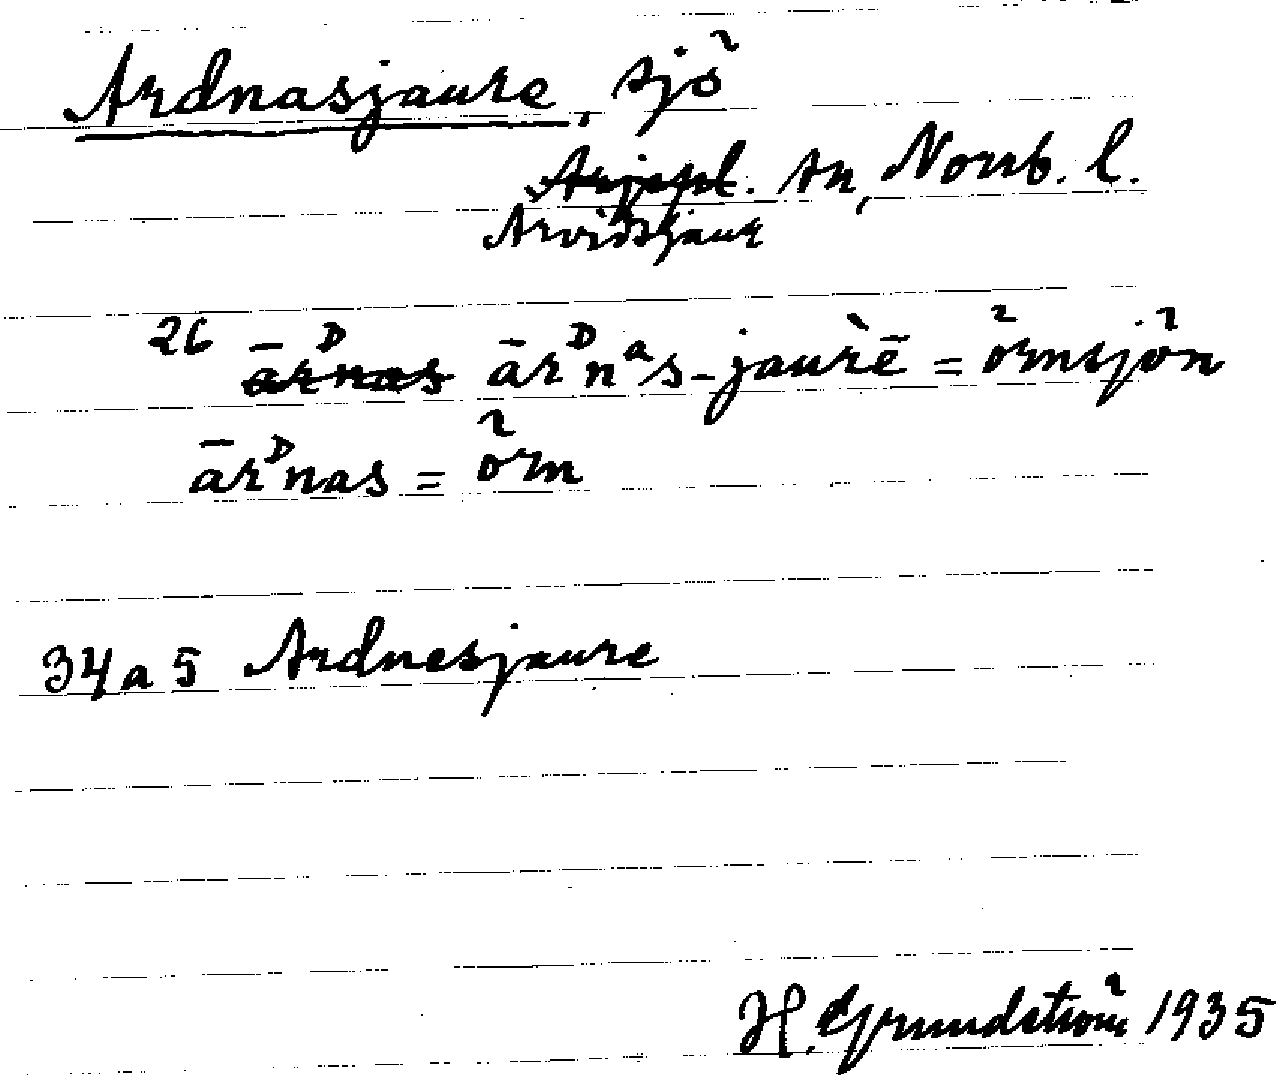 Ardnasjaure, sjö
Arjepl. sn, Norrb. l.
Arvidsjaur
26 ārᴰnas ārᴰnᵃs-jaurè̄ = örnsjön
ārᴰnas = örn
34 a 5 Ardnesjaure
H. Grundström 1935